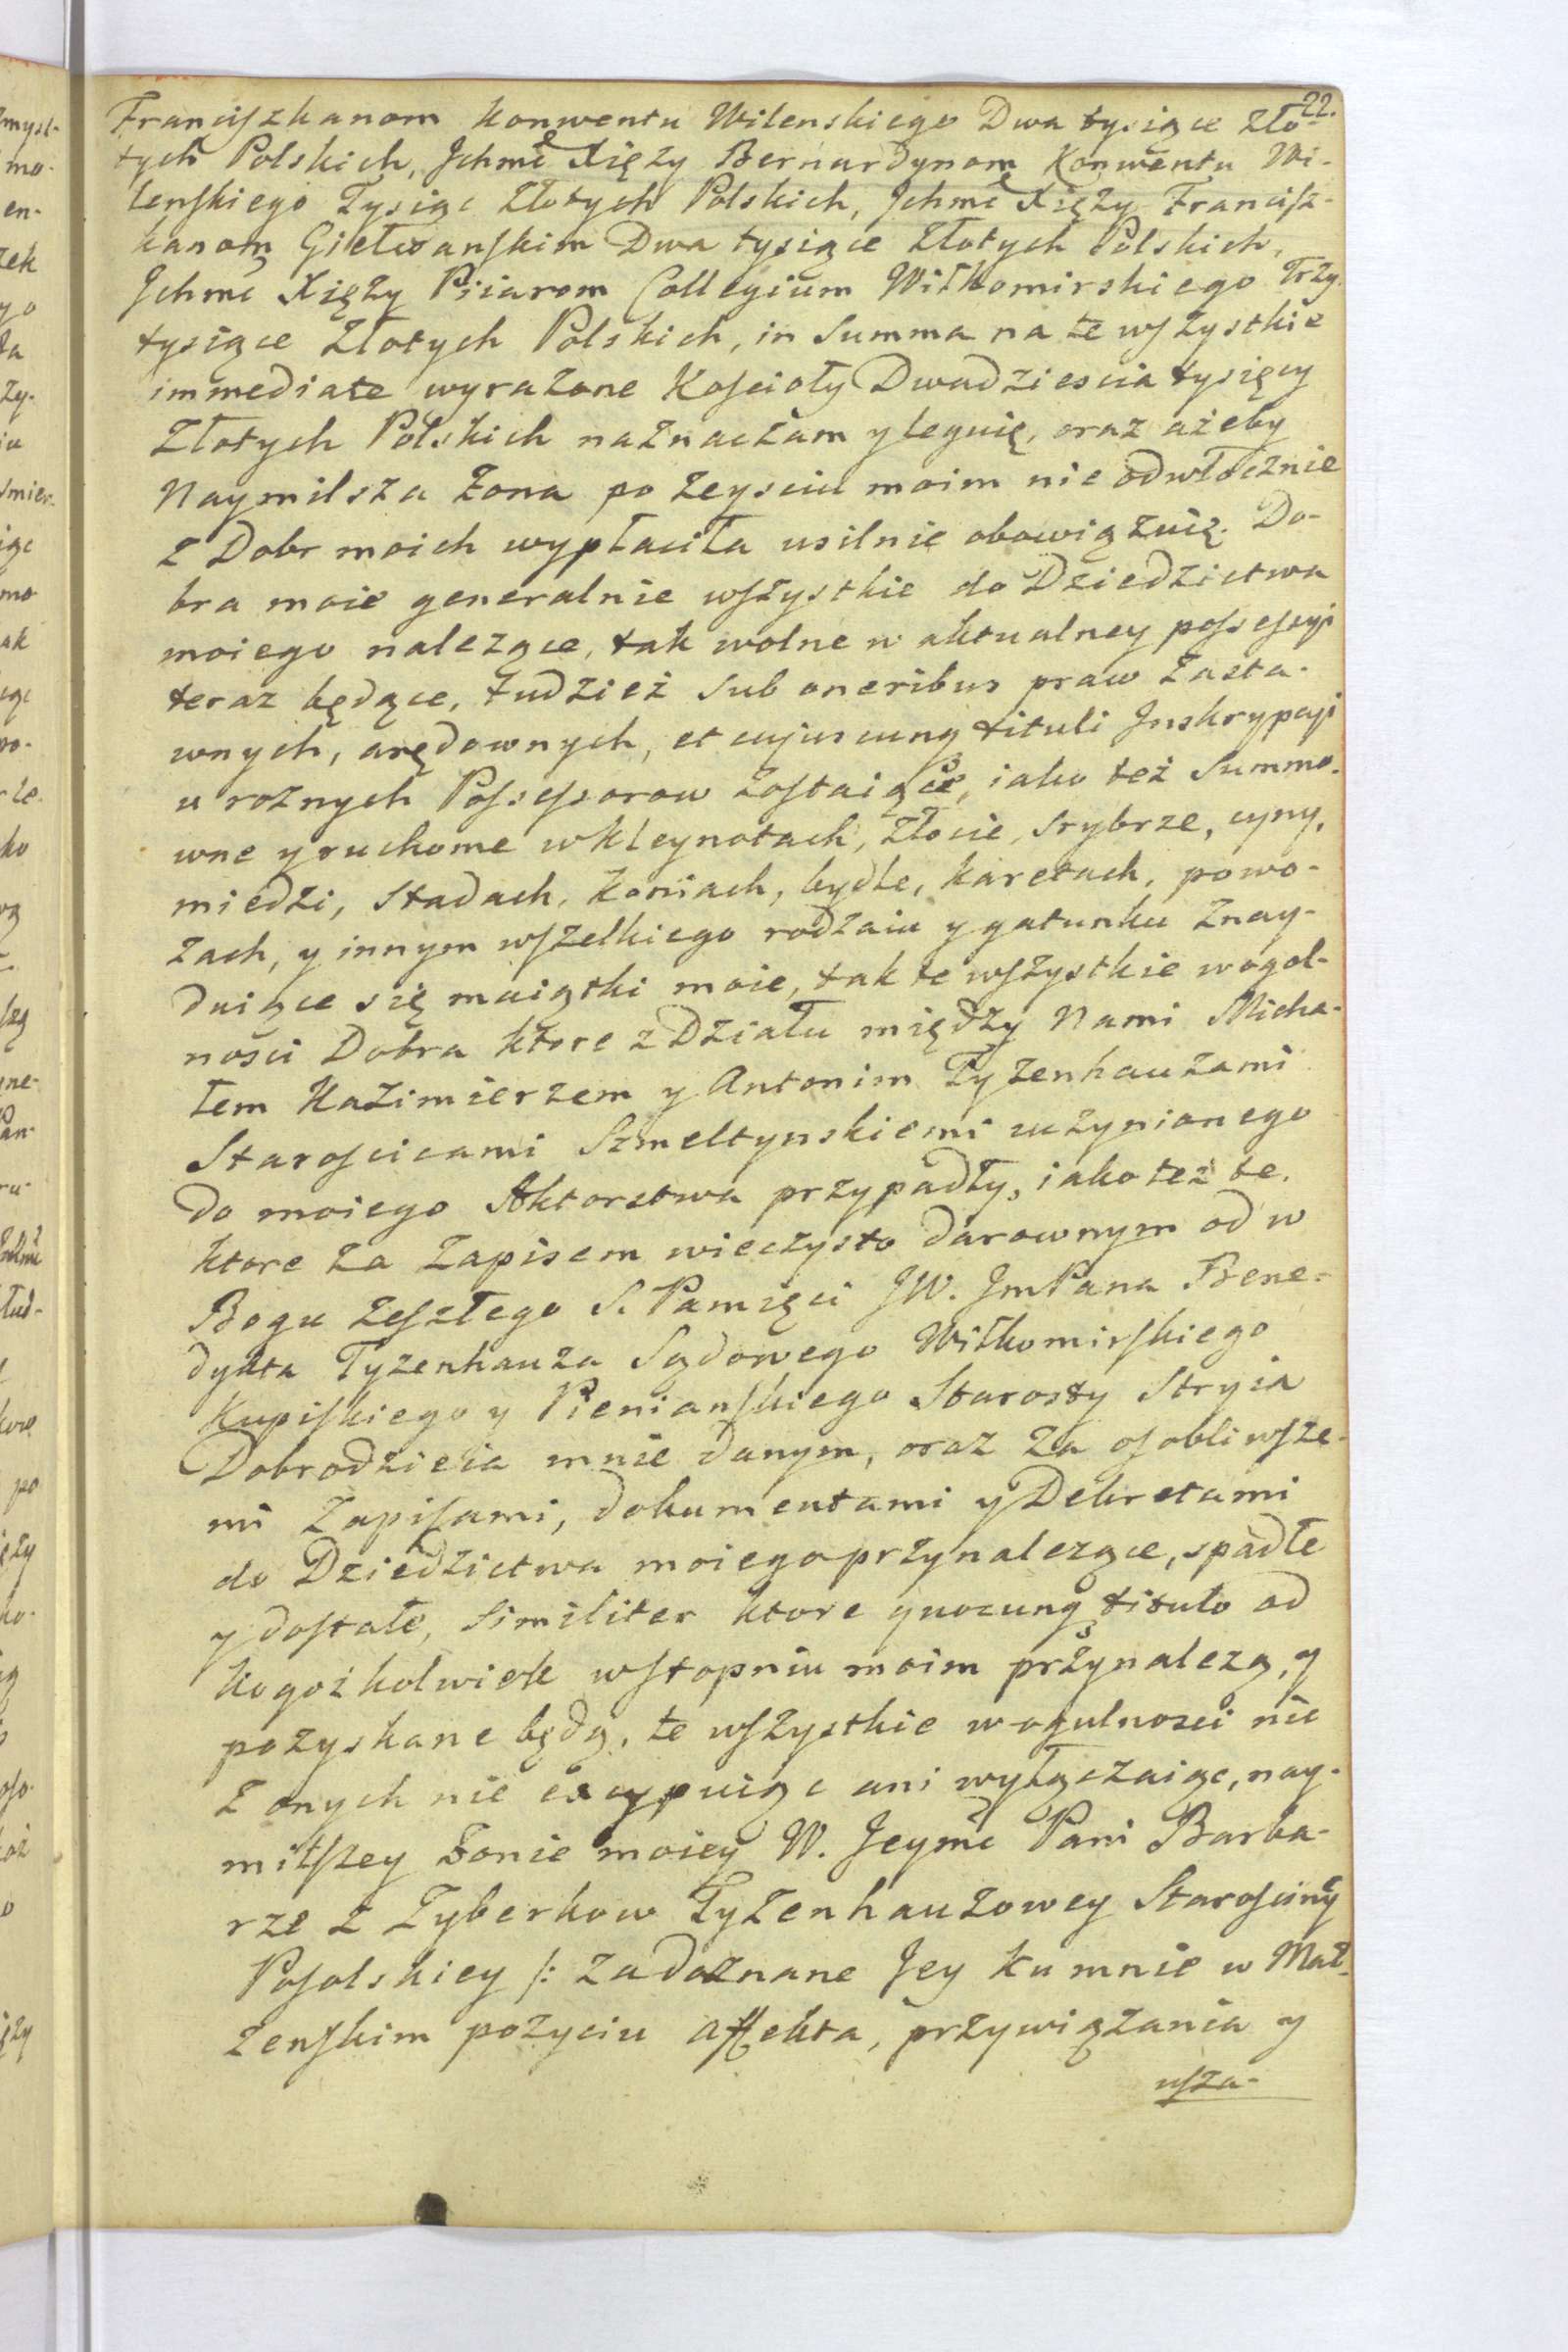 22.
Franciszkanom Konwentu Wilenskiego Dwa tysiące Zło-
tych Polskich, Jchmć Xięży Bernardynom Konwentu Wi-
lenskiego Tysiąc Złotych Polskich, Jchmć Xięży Francisz-
kanom Giełwanskim Dwa tysiące Złotych Polskich,
Jchmć Xięży Piiarom Collegium Wiłkomirskiego Trzy
tysiące Złotych Polskich, in Summa na te wszystkie
immediate wyrażone Kościoły Dwadziescia tysięcy
Złotych Polskich naznaczam y leguię, oraz ażeby
Naymilsza Żona po zeysciu moim nie odwłocznie
z Dobr moich wypłaciła usilnie obowiązuię. Do-
bra moie generalnie wszystkie do Dziedzictwa
moiego należące, tak wolne w aktualney possessyi
teraz będące, tudzież sub oneribus praw Zasta-
wnych, arędownych, et cujuscunq tituli Jnskrypcyi
u roznych Possessorow zostaiące, iako też Summo-
wne y ruchome w kleynotach, złocie, srybrze, cyny,
miedzi, stadach, koniach, bydle, karetach, powo-
zach, y innym wszelkiego rodzaiu y gatunku znay-
duiące się maiątki moie, tak te wszystkie w ogol-
nosci Dobra ktore z Działu między Nami Micha-
łem Kazimierzem y Antonim Tyzenhauzami
Staroscicami Szmeltynskiemi uczynionego
do moiego Aktorstwa przypadły, iako też te,
ktore za Zapisem wieczysto darownym od w
Bogu zeszłego S. Pamięci JW. JmPana Bene-
dykta Tyzenhauza Sądowego Wiłkomirskiego
Kupiskiego y Pienianskiego Starosty Stryia
Dobrodzieia mnie danym, oraz za osobliwsze-
mi Zapisami, dokumentami y Dekretami
do Dziedzictwa moiego przynalezące, spadłe
y dostałe, similiter ktore quocunq titulo od
kogożkolwiek w stopniu moim przynalezą, y
pozyskane będą, te wszystkie w ogulnosci nic
z onych nie excypuiąc ani wyłączaiąc, nay-
milszey Żonie moiey W. Jeymć Pani Barba-
rze z Zyberkow Tyzenhauzowey Starosciny
Posolskiey /: za doznane Jey ku mnie w Mał-
żenskim pożyciu affekta, przywiązania y
usza-